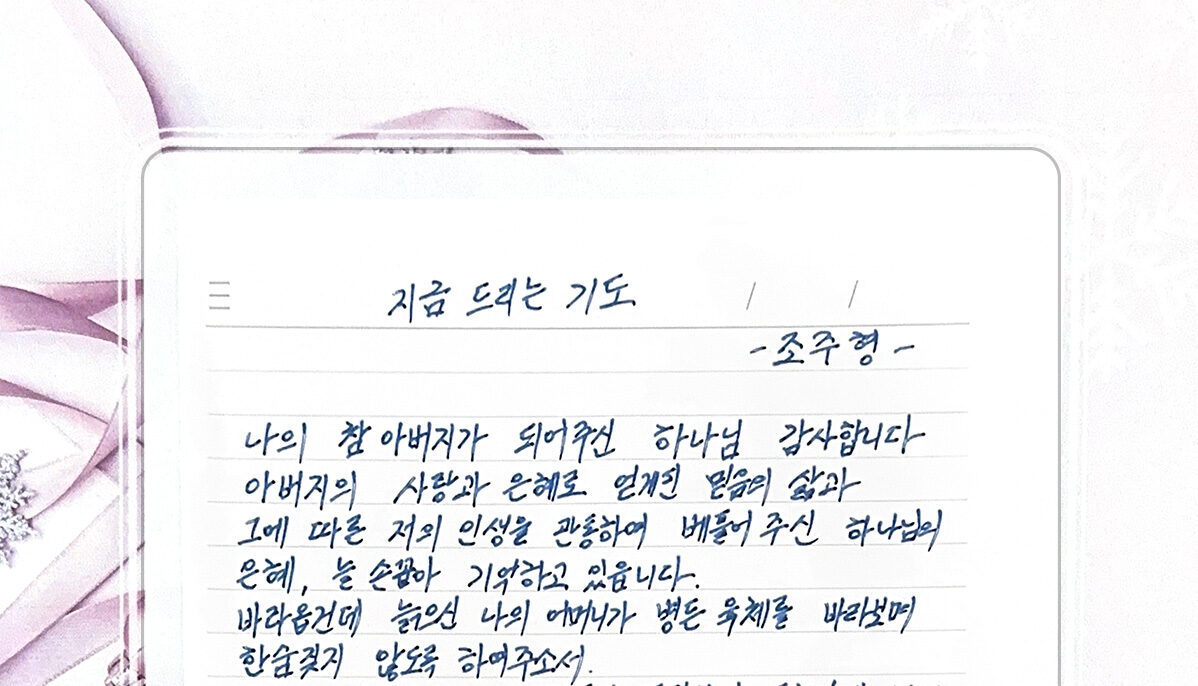 지금 드리는 기도
- 조주형 -
나의 참 아버지가 되어주신 하나님 감사합니다
아버지의 사랑과 은혜로 얻게된 믿음의 삶과
그에 따른 저의 인생을 관통하여 베풀어 주신 하나님의
은혜, 늘 손꼽아 기억하고 있읍니다.
바라옵건데 늙으신 나의 어머니가 병든 육체를 바라보며
한숨짖지 않도록 하여주소서.